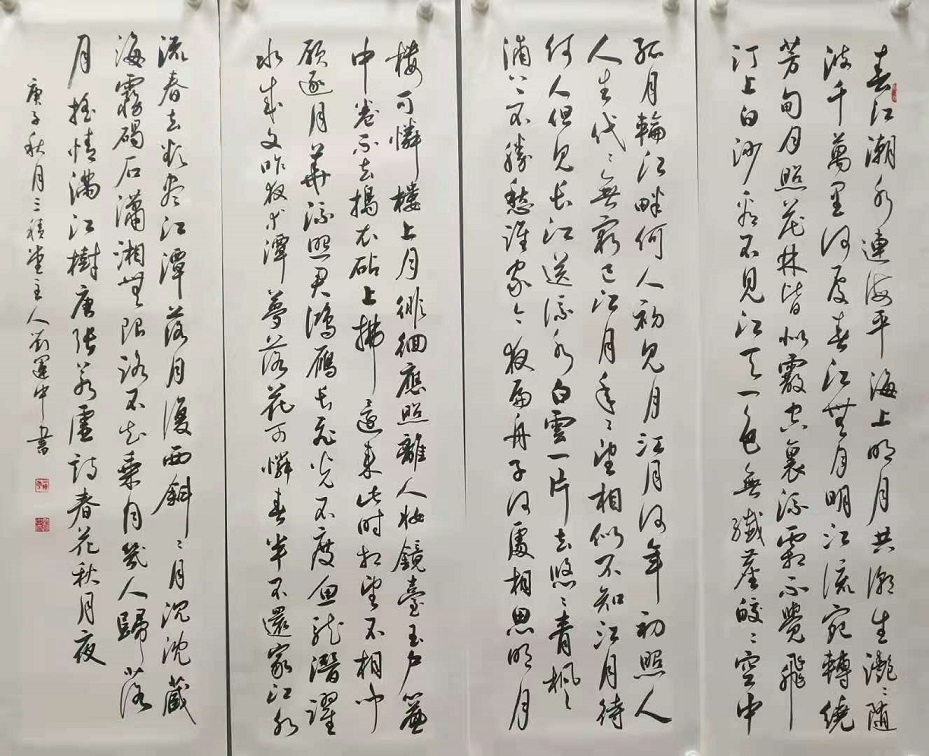 春江潮水連海平海上明月共潮生灧〻隨
波千萬里何處春江無月明江流宛轉繞
芳甸月照花林皆似霰空裏流霜不覺飛
汀上白沙看不見江天一色無纖塵皎〻空中
孤月輪江畔何人初見月江月何年初照人
人生代〻無窮已江月年〻望相似不知江月待
何人但見長江送流水白雲一片去悠〻青楓
浦上不勝愁誰家今夜扁舟子何處相思明月
樓可憐樓上月徘徊應照離人妝鏡臺玉户簾
中卷不去搗衣砧上拂還来此時相望不相聞
願逐月華流照君鴻雁長飛光不度魚龍潛躍
水成文昨夜閑潭夢落花可憐春半不還家江水
流春去欲盡江潭落月復西斜〻月沉沉藏
海霧碣石瀟湘無限路不知乘月幾人歸落
月摇情滿江樹唐張若虛詩春花秋月夜
庚子秋月三積堂主人劉運中書